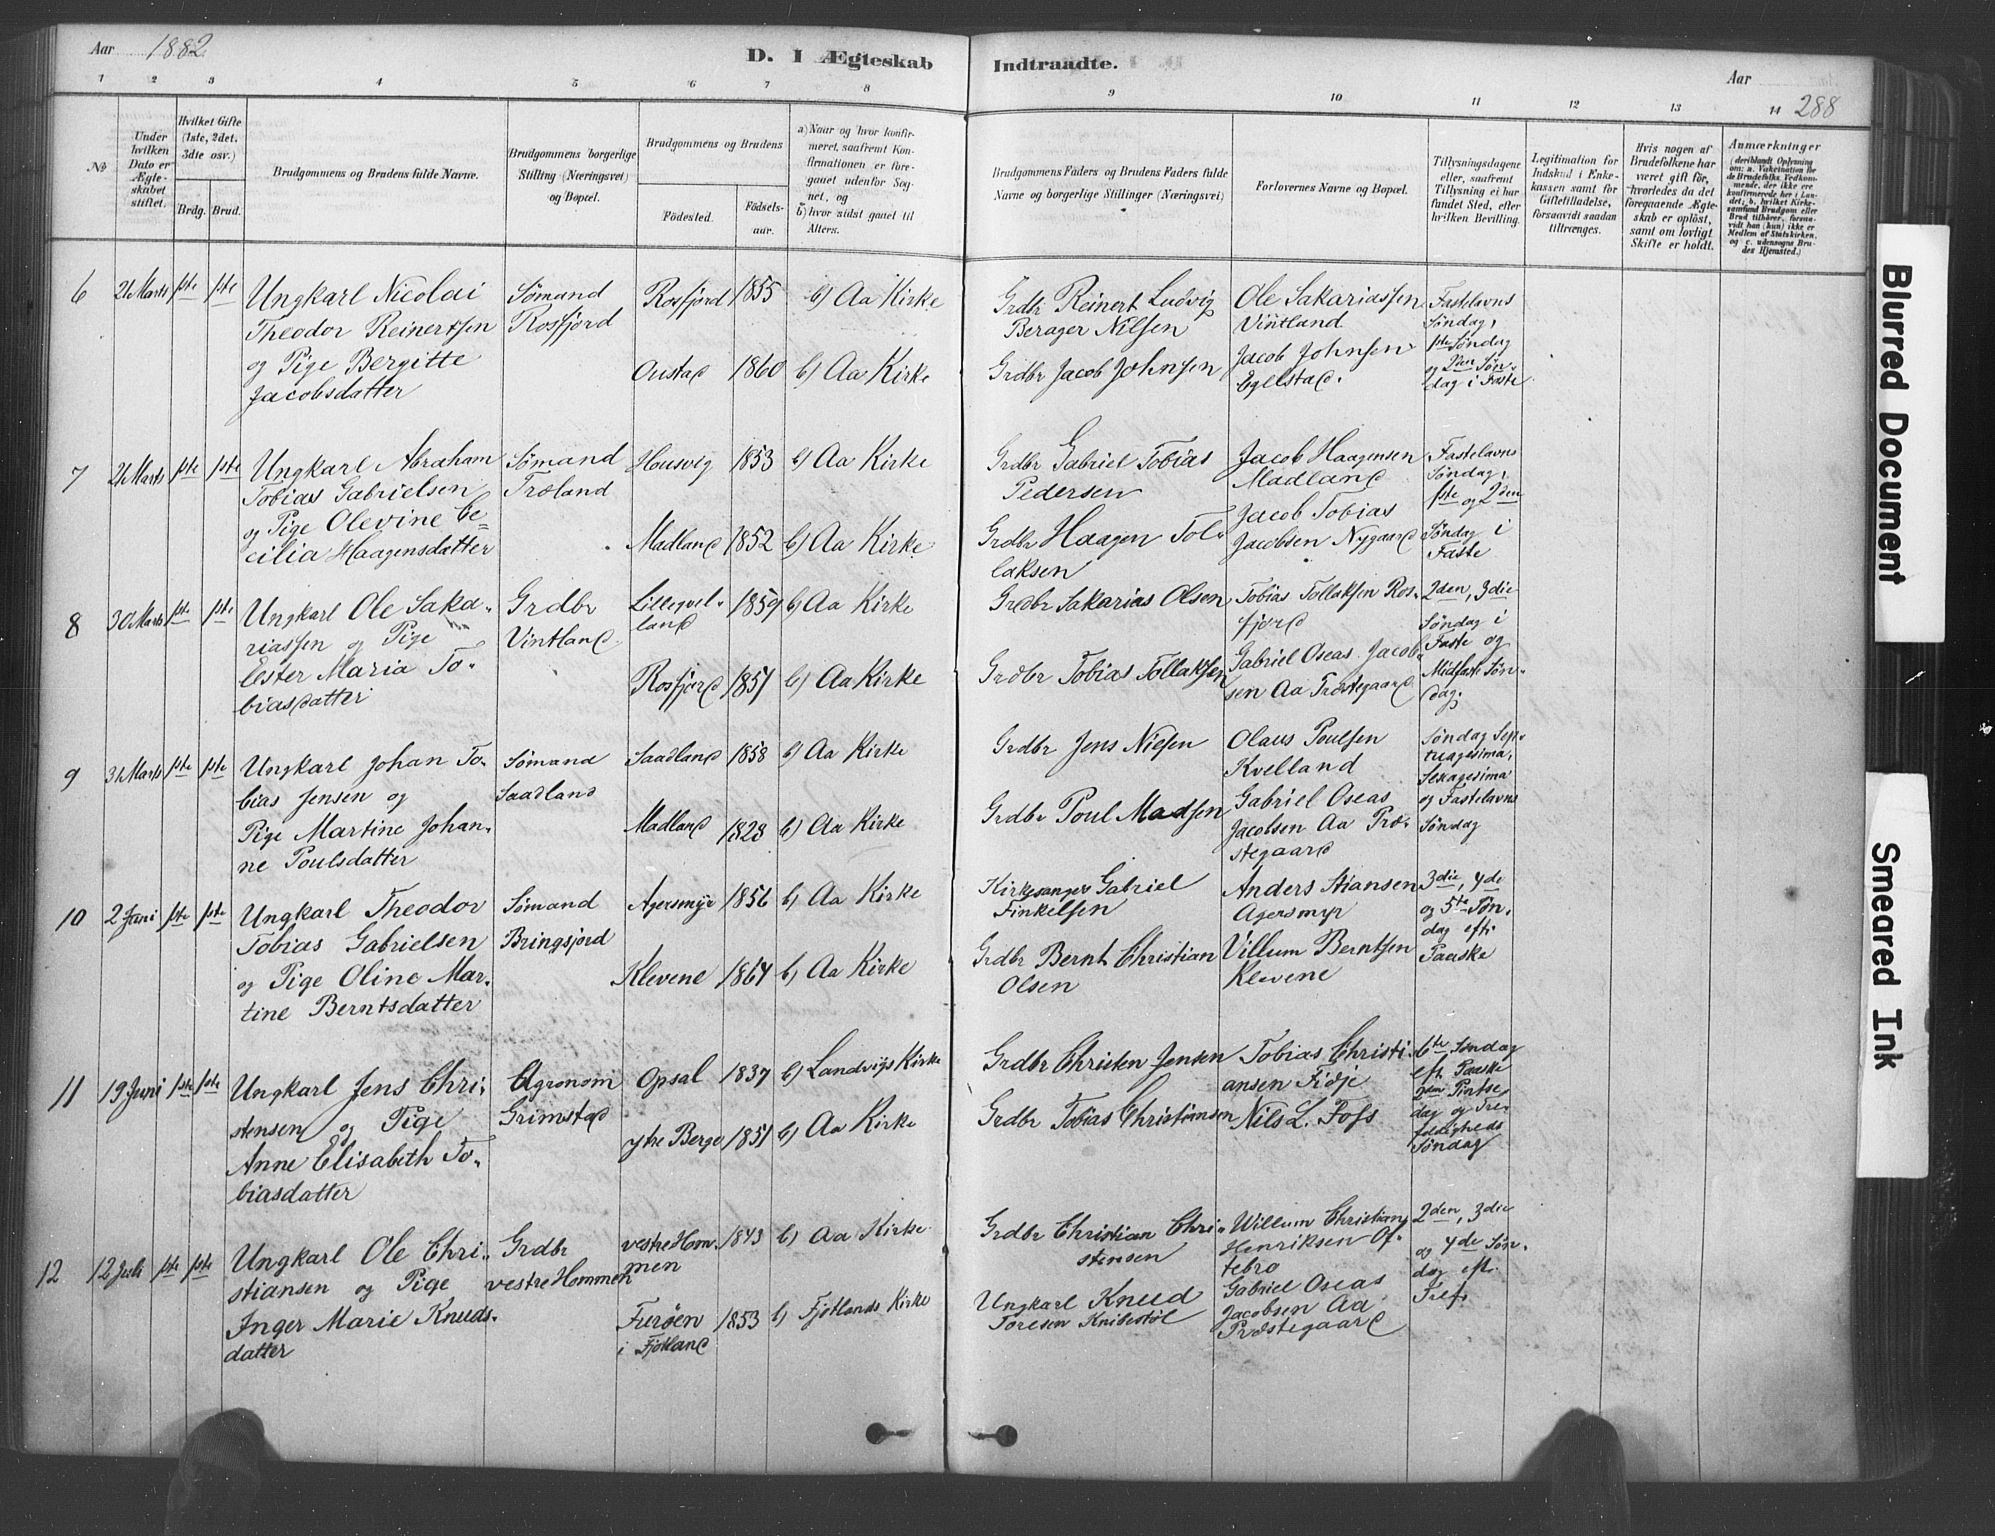 Aar 1882
D. I Ægteskab
Indtraadte.
Aar
288
1 2 3 4 5 6 7 8 9 10 11 12 13 14
№
Under hvilken Dato er Ægteskabet stiftet.
Hvilket Gifte (1ste, 2det, 3die osv.)
Brdg. Brud.
Brudgommens og Brudens fulde Navne.
Brudgommens borgerlige Stilling (Næringsvei) og Bopæl.
Brudgommens og Brudens
Födested.
Födsels-aar.
a) Naar og hvor konfirmeret, saafremt Konfirmationen er foregaaet udenfor Sognet, og
b) hvor sidst gaaet til Alters.
Brudgommens Faders og Brudens Faders fulde Navne og borgerlige Stillinger (Næringsvei)
Forlovernes Navne og Bopæl.
Tillysningsdagene eller, saafremt Tillysning ei har fundet Sted, efter hvilken Bevilling.
Legitimation for Indskud i Enkekassen samt for Giftetilladelse, forsaavidt saadan tiltrænges.
Hvis nogen af Brudefolkene har været gift før, hvorledes da det foregaaende Ægteskab er opløst, samt om lovligt Skifte er holdt.
Anmærkninger
6 21 Marts 1ste 1ste
Ungkarl Nicolai
Theodor Reinertsen
og Pige Bergitte
Jacobsdatter
Sømand
Rosfjord
Rosfjord 1855 b) Aa Kirke
Oustad 1860 b) Aa Kirke
Grdbr Reinert Ludvig
Berager Nilsen
Grdbr Jacob Johnsen
Ole Sakariassen
Vintland
Jacob Johnsen
Egelstad.
Fastelavns
Søndag,
1ste Søndag
og 2den Søn-
dag i Faste
7 21 Marts 1ste 1ste
Ungkarl Abraham
Tobias Gabrielsen
og Pige Olevine Ce=
cilia Haagensdatter
Sømand
Træland
Housvig 1853 b) Aa Kirke
Madland 1852 b) Aa Kirke
Grdbr Gabriel Tobias
Pedersen
Grdbr Haagen Tol-
laksen
Jacob Haagensen
Madland
Jacob Tobias
Jacobsen Nygaard
Fastelavns
Søndag,
1ste og 2den
Søndag i
Faste
8 30 Marts 1ste 1ste
Ungkarl Ole Saka-
riassen og Pige
Ester Maria To-
biasdatter
Grdbr
Vintland
Lilleqvel-
land 1859 b) Aa Kirke
Rosfjord 1851 b) Aa Kirke
Grdbr Sakarias Olsen
Grdbr Tobias Tollaksen
Tobias Tollaksen Ros-
fjord
Gabriel Oseas Jacob-
sen Aa Præstegaard
2den, 3die
Søndag i
Faste og
Midfaste Søn-
dag.
9 31 Marts 1ste 1ste
Ungkarl Johan To-
bias Jensen og
Pige Martine Johan-
ne Poulsdatter
Sømand
Saadland
Saadland 1858 b) Aa Kirke
Madland 1828 b) Aa Kirke
Grdbr Jens Nielsen
Grdbr Poul Madsen
Olaus Poulsen
Kvelland
Gabriel Oseas
Jacobsen Aa Præ-
stegaard
Søndag Sep-
tuagesima,
Sexagesima
og Fastelavns
Søndag
10 2 Juni 1ste 1ste
Ungkarl Theodor
Tobias Gabrielsen
og Pige Oline Mar-
tine Berntsdatter
Sømand
Bringsjord
Agersmyr 1856 b) Aa Kirke
Klevene 1864 b) Aa Kirke
Kirkesanger Gabriel
Finkelsen
Grdbr Bernt Christian
Olsen
Anders Stiansen
Agersmyr
Villum Berntsen
Klevene
3die, 4de
og 5te Søn-
dag eft.
Paaske
11 19 Juni 1ste 1ste
Ungkarl Jens Chri-
stensen og Pige
Anne Elisabeth To-
biasdatter
Agronom
Grimstad
Opsal 1837 b) Landvigs Kirke
ytre Berge 1851 b) Aa Kirke
Grdbr Christen Jensen
Grdbr Tobias Christiansen
Tobias Christi-
ansen Fidje
Nils L. Foss
6te Søndag
eft. Paaske
2den Pintse-
dag og Tre-
foldigheds
Søndag
12 12 Juli 1ste 1ste
Ungkarl Ole Chri-
stiansen og Pige
Inger Marie Knuds-
datter
Grdbr
vestre Hommen
vestre Hom-
men 1843 b) Aa Kirke
Furøen
i Fjotland 1853 b) Fjotlands Kirke
Grdbr Christian Chri-
stensen
Ungkarl Knud
Toresen Knibestøl
Willum Christian
Henriksen Of-
tebro
Gabriel Oseas
Jacobsen Aa
Præstegaard
2den, 3die
og 4de Søn-
dag eft.
Tref.
Blurred Document
Smeared Ink